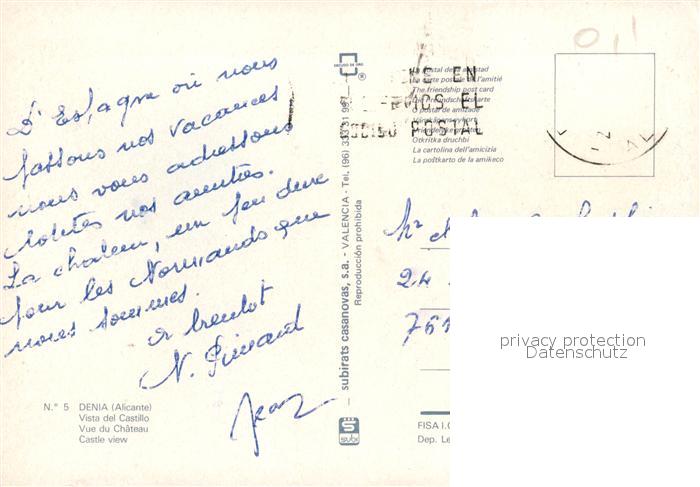 D'Espagne où nous
passons nos vacances
nous vous adressons
toutes nos amitiés.
La chaleur, un peu dure
pour les Normands que
nous sommes.
a bientôt
N.
Jean
N.° 5 DENIA (Alicante)
Vista del Castillo
Vue du Château
Castle view
subirats casanovas, s.a. - VALENCIA - Tel. (96)
Reproducción prohibida
ESCUDO DE ORO
®
SUBI
postal de la amistad
La carte postale de l'amitié
The friendship post card
Die Freundschaftskarte
O postal de amizade
Otkritka druchbi
La cartolina dell'amicizia
La poŝtkarto de la amikeco
EN
EL
POSTAL
Mr
24
761
FISA I.G
Dep. Le
privacy protection
Datenschutz